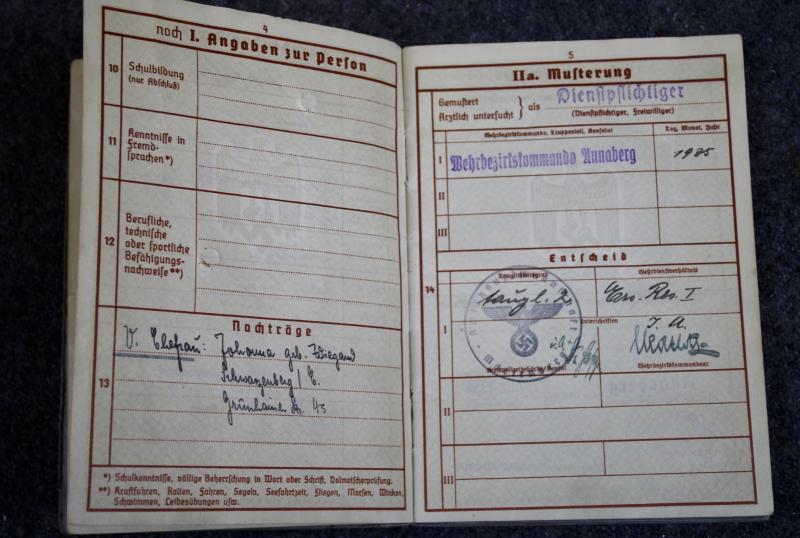 4
noch I. Angaben zur Person
10 Schulbildung
(nur Abschluß)
11 Kenntnisse in
Fremd-
sprachen*)
12 Berufliche,
technische
oder sportliche
Befähigungs-
nachweise**)
Nachträge
13
V. Ehefrau: Johanna geb. Wiegand
Schwarzenberg / E.
Grünhainer 45
*) Schulkenntnisse, völlige Beherrschung in Wort oder Schrift, Dolmetscherprüfung.
**) Kraftfahren, Reiten, Fahren, Segeln, Seefahrtzeit, Fliegen, Morsen, Winken,
Schwimmen, Leibesübungen usw.
5
IIa. Musterung
Gemustert
Ärztlich untersucht } als Dienstpflichtiger
(Dienstpflichtiger, Freiwilliger)
Wehrbezirkskommando, Truppenteil, Konsulat Tag, Monat, Jahr
I Wehrbezirkskommando Annaberg 1935
II
III
Entscheid
14
Tauglichkeitsgrad Wehrdienstverhältnis
taugl. 2 Ers. Res. I
Unterschriften
I J. A.
Wehrbezirkskommandeur
II
III